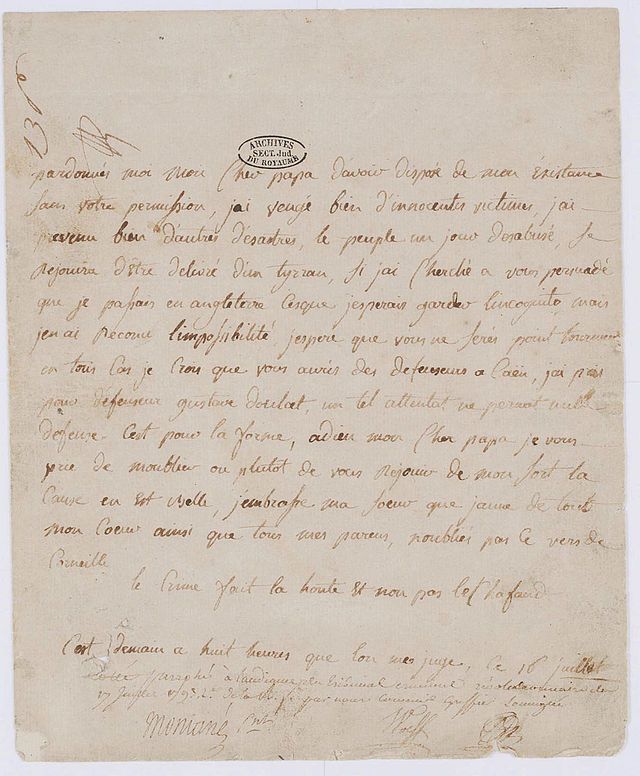 13e
ARCHIVES
SECT. Jud.
DU ROYAUME
pardonnés moi mon Cher papa d'avoir disposé de mon Existance
sans votre permission, jai vengé bien d'innocentes victimes, jai
prevenu bien d'autres désastres, le peuple un jour desabusé, se
rejouira d'être delivré d'un tyrran, si jai Cherché a vous persuadé
que je passais en angleterre Cesque jesperais garder lincognito mais
jen ai reconnu limpossibilité jespere que vous ne serés point tourmenté
en tous Cas je Crois que vous aurés des defenseurs a Caën, jai pris
pour défenseur gustave doulcet, un tel attentat ne permet nulle
defense. Cest pour la forme, adieu mon Cher papa je vous
prie de moublier ou plutot de vous rejouir de mon sort la
Cause en est belle, jembrasse ma soeur que jaime de tout
mon Coeur ainsi que tous mes parens, noubliés pas Ce vers de
Corneille
le Crime fait la honte et non pas lechafaud
Cest demain a huit heures que lon me juge, Ce 16 juillet
paraphé à du tribunal criminel révolutionnaire le
17 de la par nous greffier soussigné
Montané Pnt
Wolff